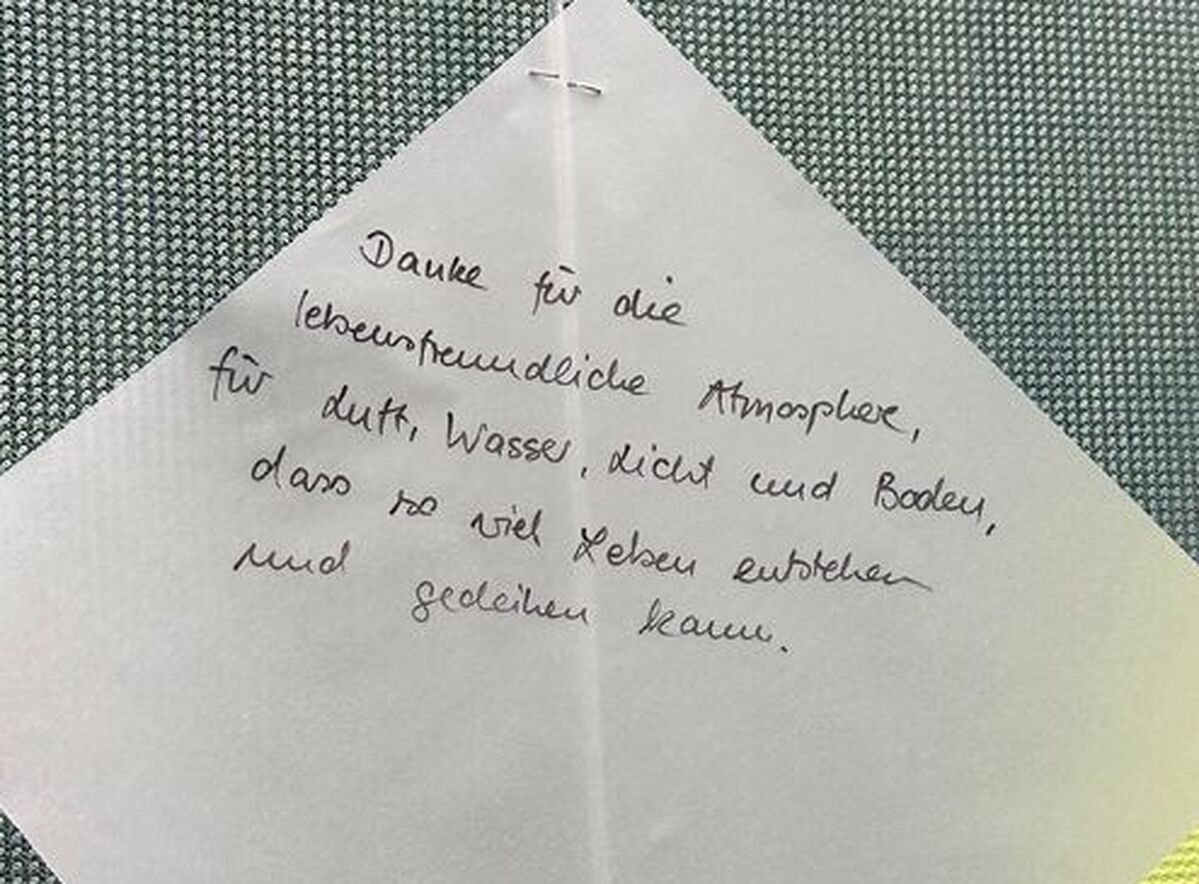 Danke für die
lebensfreundliche Atmosphere,
für Luft, Wasser, Licht und Boden,
dass so viel Leben entstehen
und gedeihen kann.